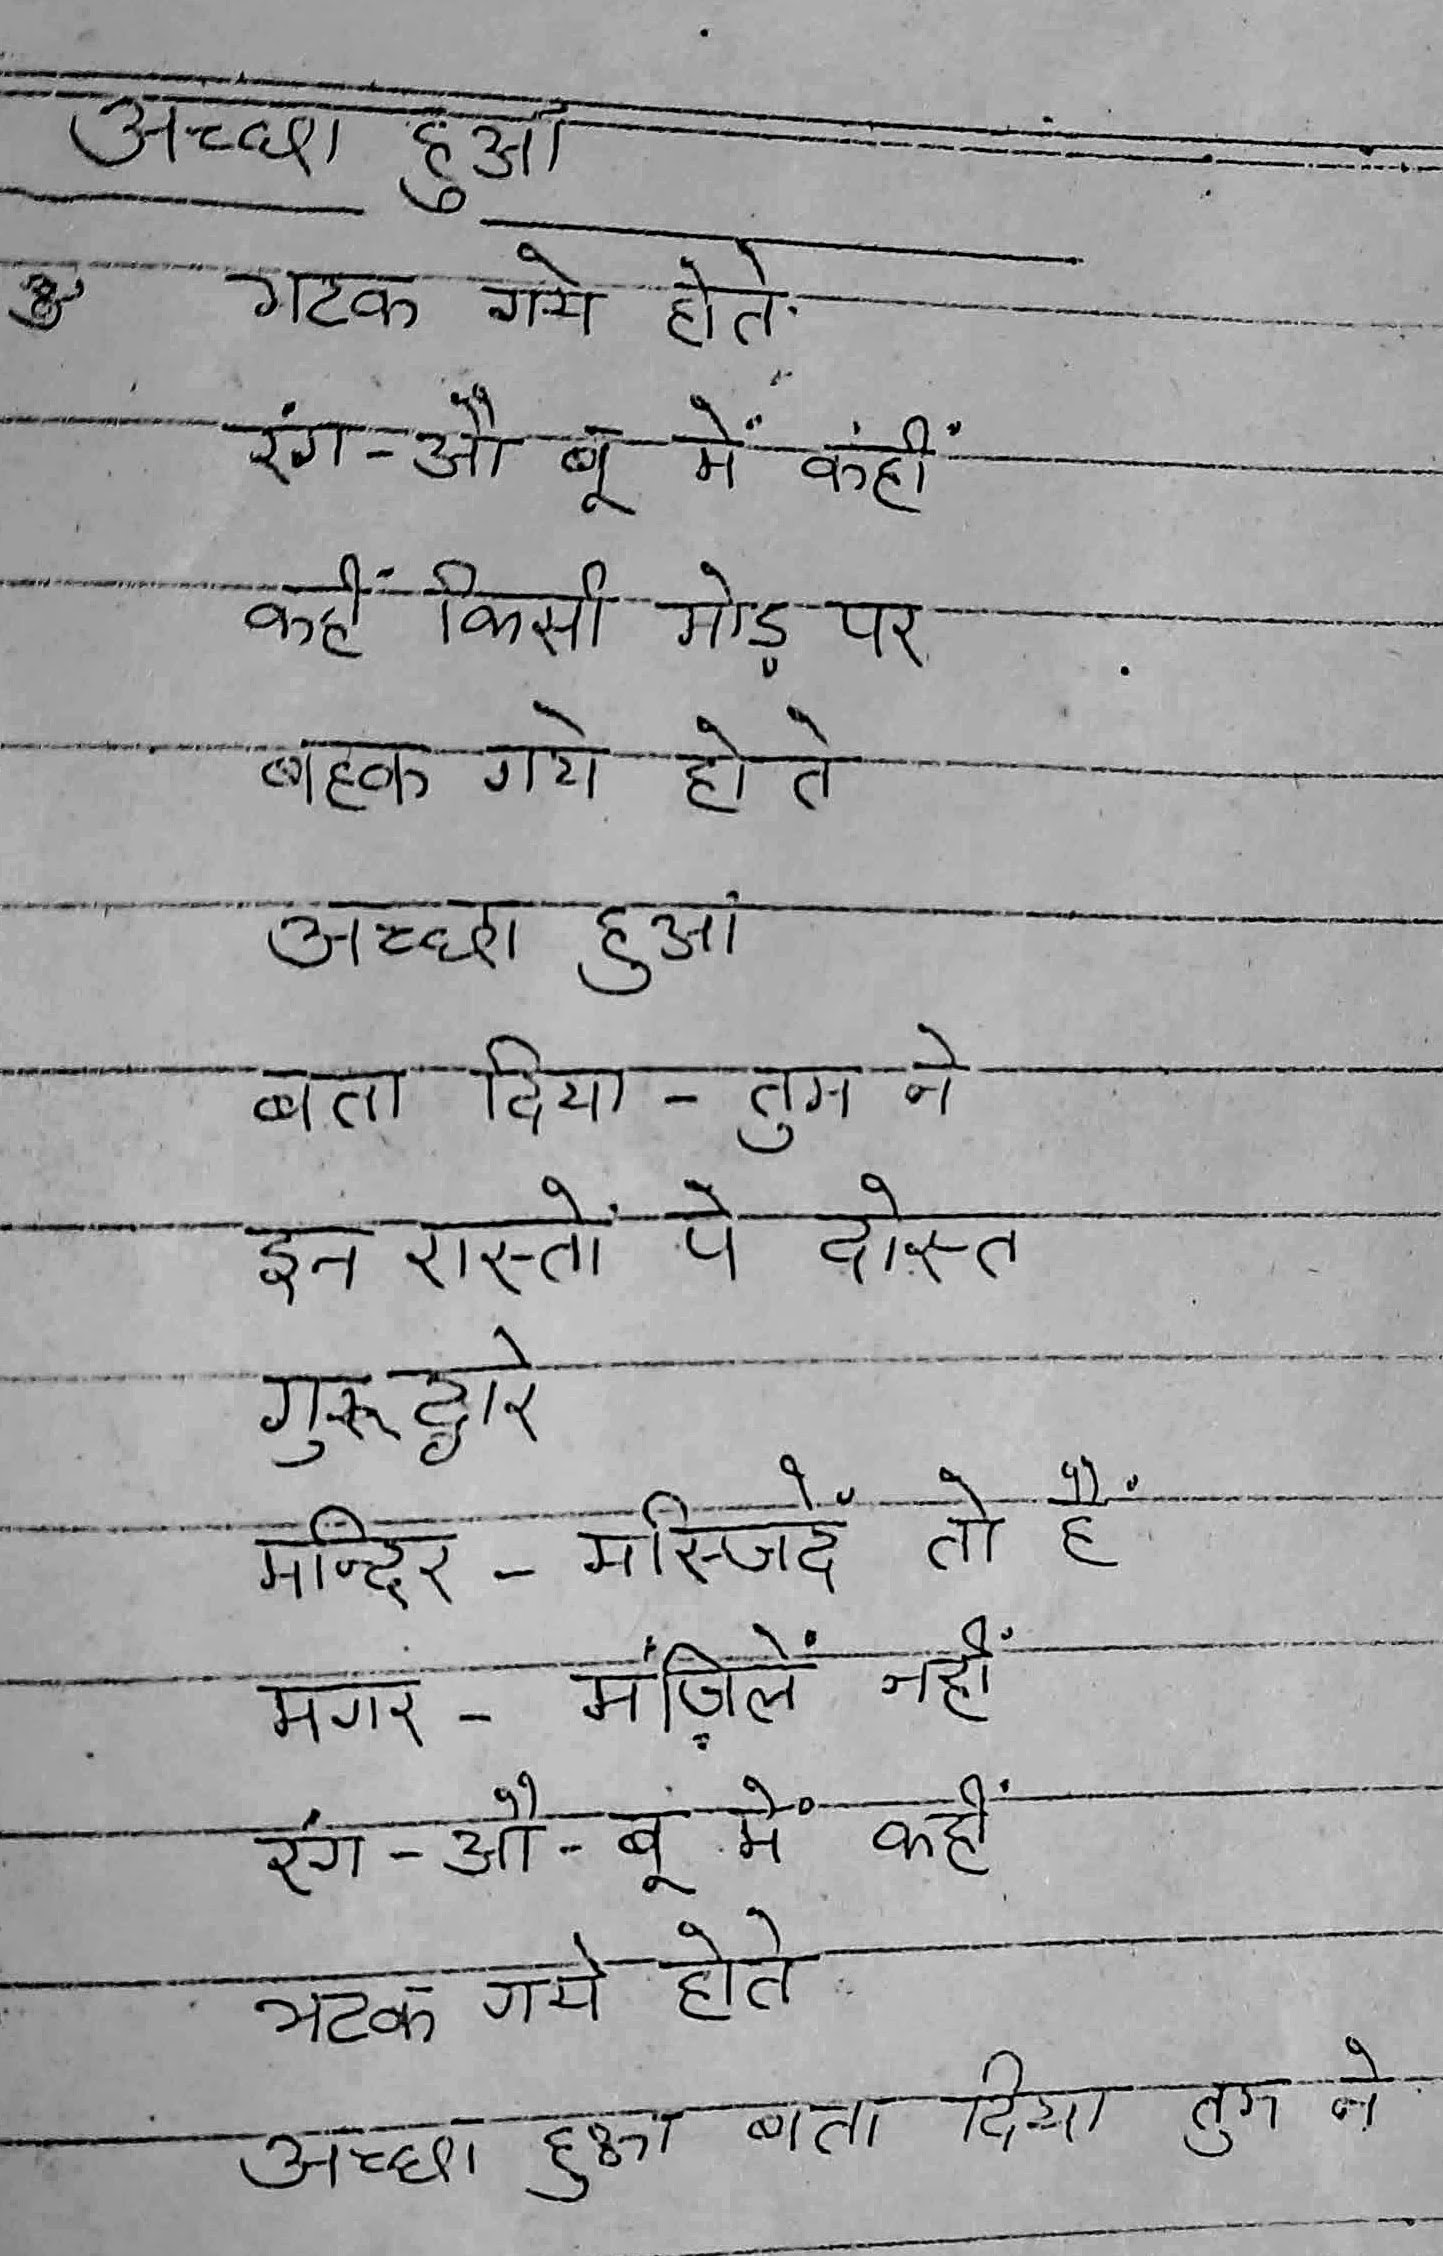 अच्छा हुआ
गटक गये होते
रंग-औ बू में कंहीं
कहीं किसी मोड़ पर
बहक गये होते
अच्छा हुआ
बता दिया - तुम ने
इन रास्तों पे दोस्त
गुरूद्वारे
मन्दिर - मस्जिदें तो हैं
मगर - मंज़िलें नहीं
रंग-औ-बू में कहीं
भटक गये होते
अच्छा हुआ बता दिया तुम ने